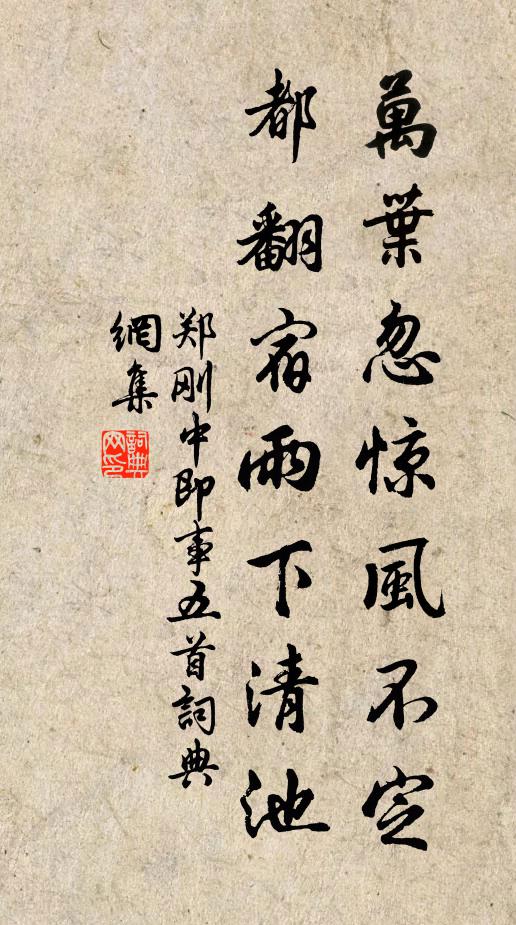 萬葉忽惊風不定
都翻宿雨下清池
郑刚中即事五首詞典
網集
詞典网印